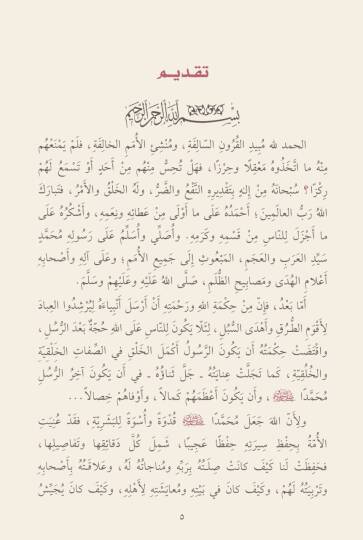 تقديم
بِسْمِ اللهِ الرَّحْمٰنِ الرَّحِيمِ
الحمد لله مُبِيدِ القُرُونِ السَّالِفَةِ، وَمُنْشِئِ الأُمَمِ الخالِفَةِ، فَلَمْ يَمْنَعْهُم
مِنْهُ ما اتَّخَذُوهُ مَعْقِلًا وحِرْزًا، فَهَلْ تُحِسُّ مِنْهُم مِنْ أَحَدٍ أَوْ تَسْمَعُ لَهُمْ
رِكْزًا؟ سُبْحَانَهُ مِنْ إِلهٍ بِتَقْدِيرِهِ النَّفْعُ والضُّرُّ، ولَهُ الخَلْقُ والأَمْرُ، فَتَبارَكَ
اللهُ رَبُّ العالَمِينَ؛ أَحْمَدُهُ عَلَى ما أَوْلَى مِنْ عَطائِهِ ونِعَمِهِ، وأَشْكُرُهُ عَلَى
ما أَجْزَلَ لِلنّاسِ مِنْ قِسَمِهِ وكَرَمِهِ. وأُصَلِّي وأُسَلِّمُ عَلَى رَسُولِهِ مُحَمَّدٍ
سَيِّدِ العَرَبِ والعَجَمِ، المَبْعُوثِ إِلَى جَمِيعِ الأُمَمِ؛ وعَلَى آلِهِ وأَصْحابِهِ
أَعْلامِ الهُدَى ومَصابِيحِ الظُّلَمِ، صَلَّى اللهُ عَلَيْهِ وعَلَيْهِمْ وسَلَّمَ.
أَمّا بَعْدُ، فَإِنَّ مِنْ حِكْمَةِ اللهِ ورَحْمَتِهِ أَنْ أَرْسَلَ أَنْبِياءَهُ لِيُرْشِدُوا العِبادَ
لِأَقْوَمِ الطُّرُقِ وأَهْدَى السُّبُلِ، لِئَلَّا يَكُونَ لِلنّاسِ عَلَى اللهِ حُجَّةٌ بَعْدَ الرُّسُلِ،
واقْتَضَتْ حِكْمَتُهُ أَنْ يَكُونَ الرَّسُولُ أَكْمَلَ الخَلْقِ في الصِّفاتِ الخَلْقِيَّةِ
والخُلُقِيَّةِ، كَما تَجَلَّتْ عِنايَتُهُ ـ جَلَّ ثَناؤُهُ ـ في أَنْ يَكُونَ آخِرُ الرُّسُلِ
مُحَمَّدًا ﷺ، وأَنْ يَكُونَ أَعْظَمَهُمْ كَمالاً، وأَوْفاهُمْ خِصالاً...
ولأَنَّ اللهَ جَعَلَ مُحَمَّدًا ﷺ قُدْوَةً وأُسْوَةً لِلبَشَرِيَّةِ، فَقَدْ عُنِيَتِ
الأُمَّةُ بِحِفْظِ سِيرَتِهِ حِفْظًا عَجِيبًا، شَمِلَ كُلَّ دَقائِقِها وتَفاصِيلِها،
فحَفِظَتْ لَنا كَيْفَ كانَتْ صِلَتُهُ بِرَبِّهِ ومُناجاتُهُ لَهُ، وعَلاقَتُهُ بِأَصْحابِهِ
وتَرْبِيَتُهُ لَهُمْ، وكَيْفَ كانَ في بَيْتِهِ ومُعايَشَتِهِ لِأَهْلِهِ، وكَيْفَ كانَ يُجَيِّشُ
٥